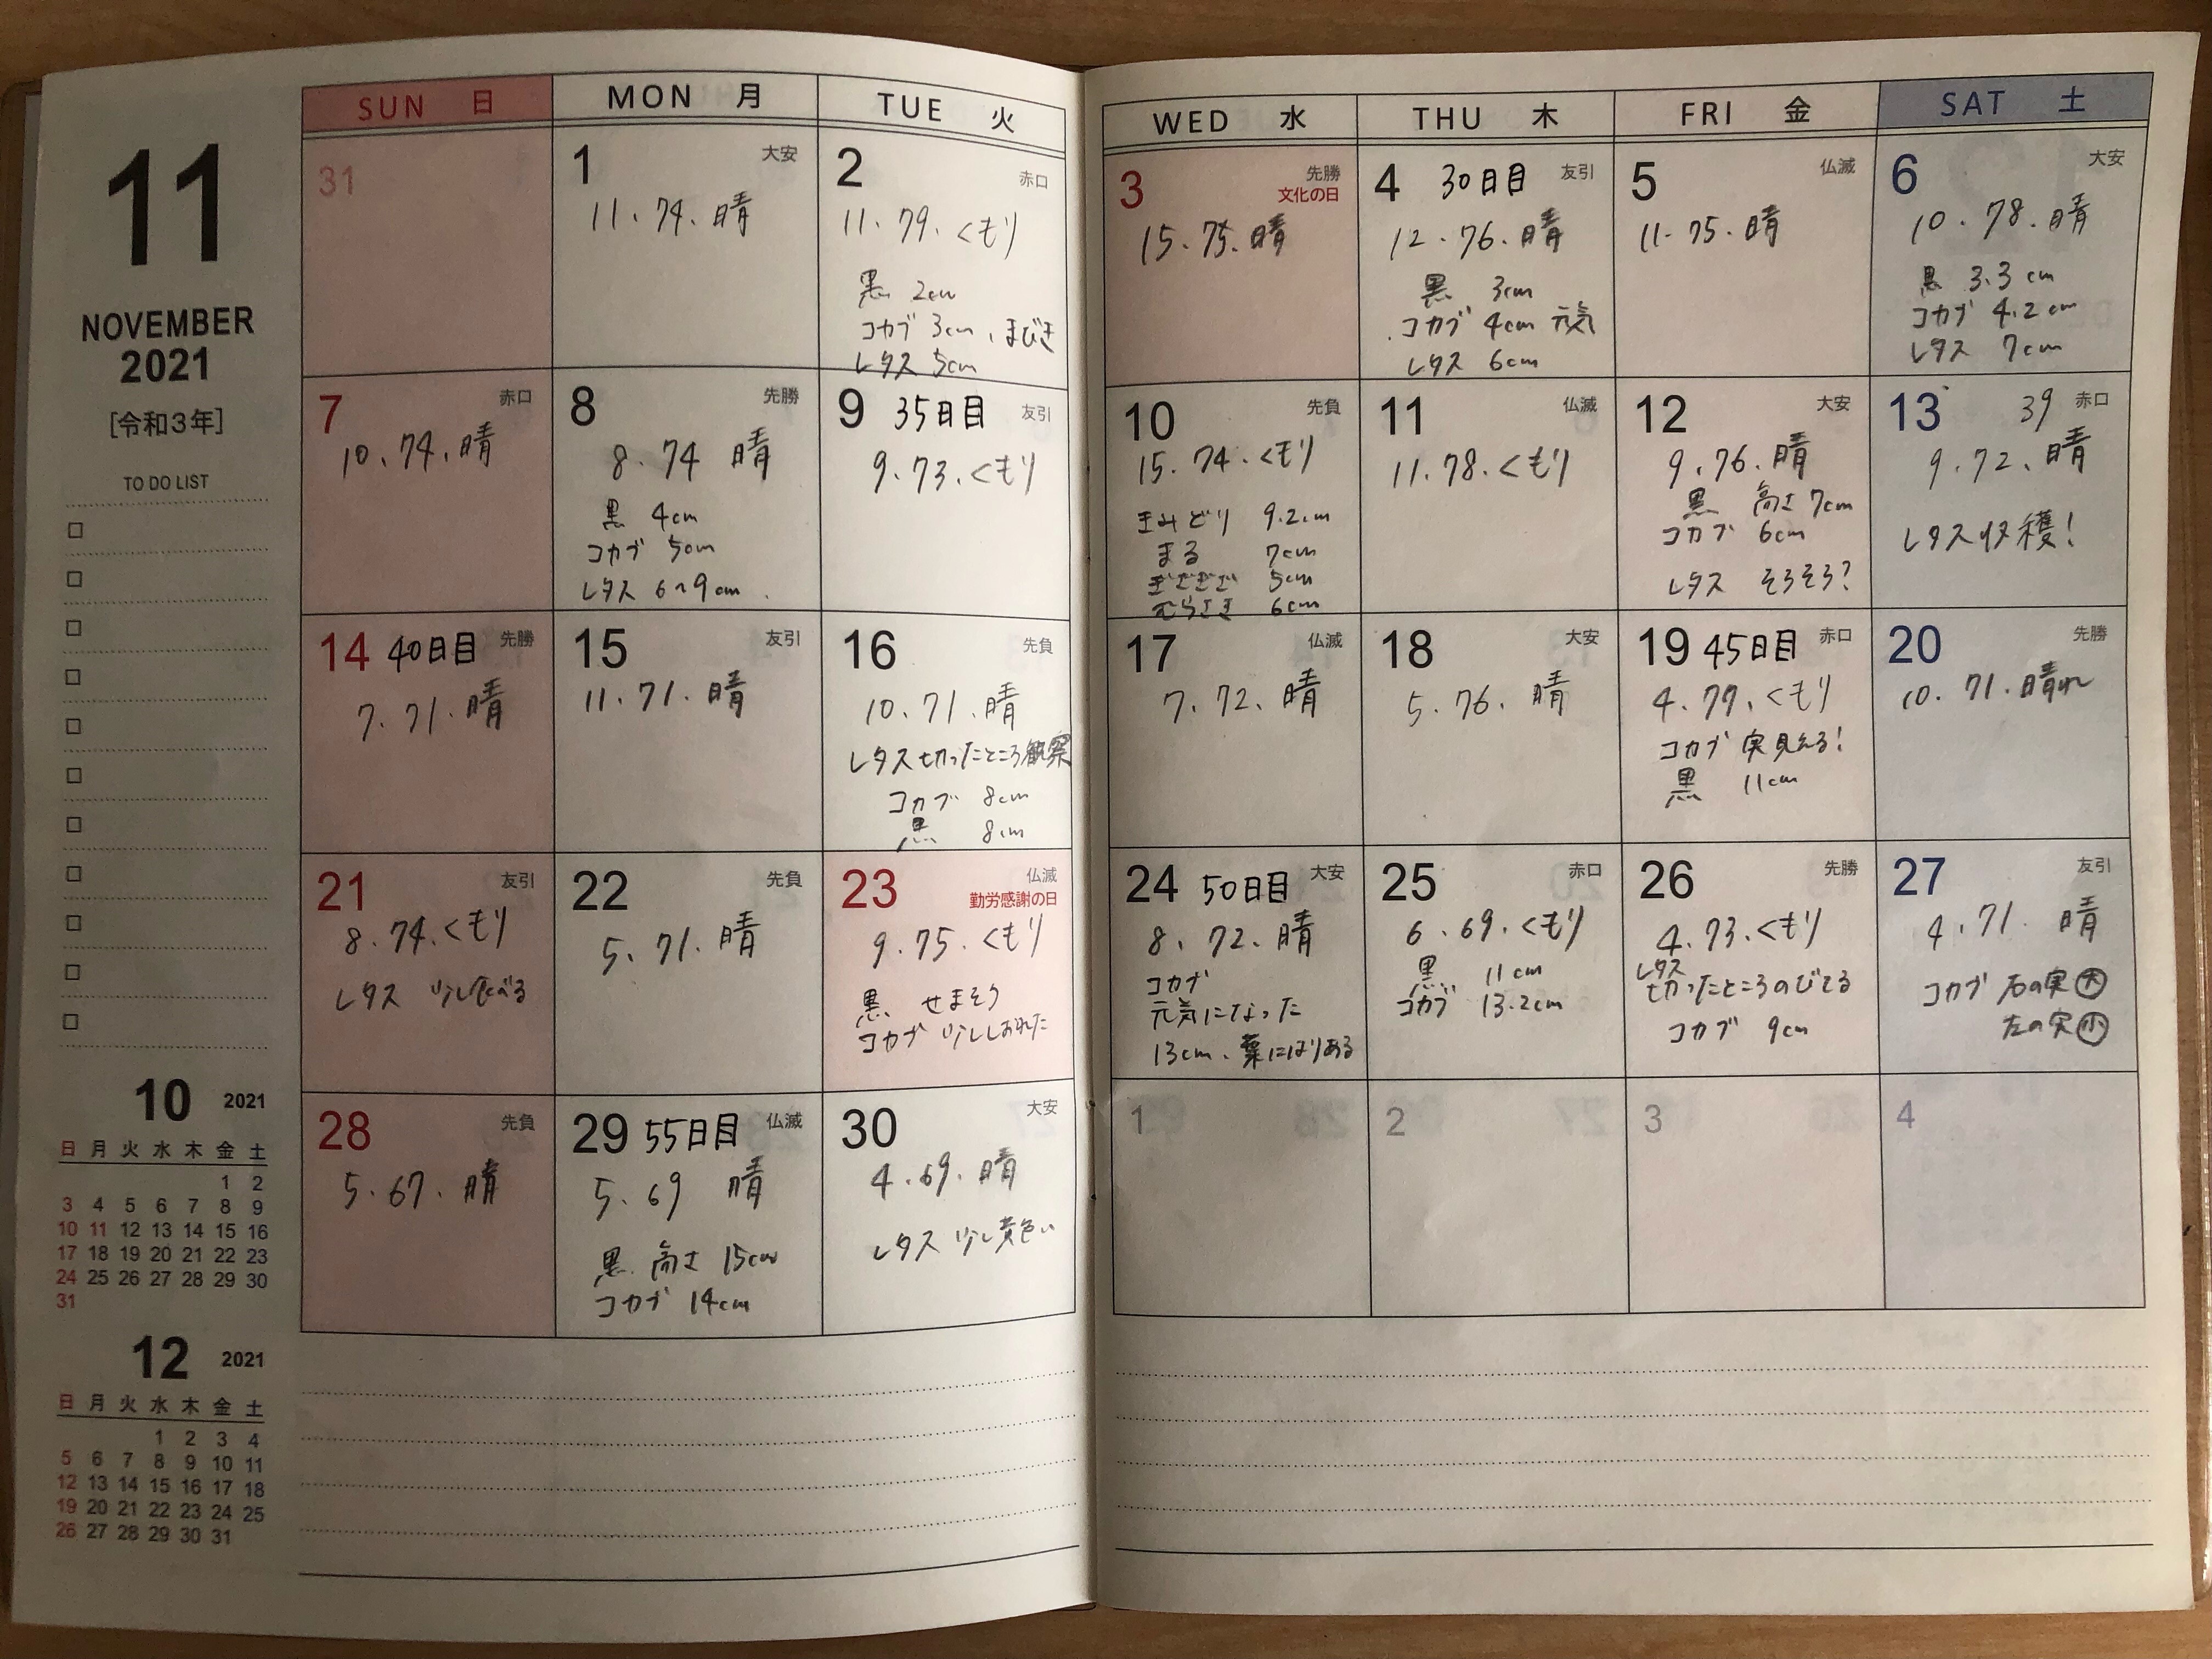 11
NOVEMBER
2021
[令和3年]
TO DO LIST
10 2021
日 月 火 水 木 金 土
1 2
3 4 5 6 7 8 9
10 11 12 13 14 15 16
17 18 19 20 21 22 23
24 25 26 27 28 29 30
31
12 2021
日 月 火 水 木 金 土
1 2 3 4
5 6 7 8 9 10 11
12 13 14 15 16 17 18
19 20 21 22 23 24 25
26 27 28 29 30 31
SUN 日 MON 月 TUE 火 WED 水 THU 木 FRI 金 SAT 土
31
1 大安
11. 74. 晴
2 赤口
11. 79. くもり
黒 2cm
コカブ 3cm、まびき
レタス 5cm
3 先勝
文化の日
15. 75. 晴
4 30日目 友引
12. 76. 晴
黒 3cm
コカブ 4cm 元気
レタス 6cm
5 仏滅
11. 75. 晴
6 大安
10. 78. 晴
黒 3.3cm
コカブ 4.2cm
レタス 7cm
7 赤口
10. 74. 晴
8 先勝
8. 74 晴
黒 4cm
コカブ 5cm
レタス 6~9cm.
9 35日目 友引
9. 73. くもり
10 先負
15. 74. くもり
きみどり 9.2cm
まる 7cm
ぎざぎざ 5cm
むらさき 6cm
11 仏滅
11. 78. くもり
12 大安
9. 76. 晴
黒 高さ 7cm
コカブ 6cm
レタス そろそろ?
13 39 赤口
9. 72. 晴
レタス収穫!
14 40日目 先勝
7. 71. 晴
15 友引
11. 71. 晴
16 先負
10. 71. 晴
レタス切ったところ観察
コカブ 8cm
黒 8cm
17 仏滅
7. 72. 晴
18 大安
5. 76. 晴
19 45日目 赤口
4. 77. くもり
コカブ 実見える!
黒 11cm
20 先勝
10. 71. 晴れ
21 友引
8. 74. くもり
レタス 少し食べる
22 先負
5. 71. 晴
23 仏滅
勤労感謝の日
9. 75. くもり
黒 せまそう
コカブ 少ししおれた
24 50日目 大安
8. 72. 晴
コカブ
元気になった
13cm、葉にはりある
25 赤口
6. 69. くもり
黒 11cm
コカブ 13.2cm
26 先勝
4. 73. くもり
レタス
切ったところのびてる
コカブ 9cm
27 友引
4. 71. 晴
コカブ 右の実 大
左の実 小
28 先負
5. 67. 晴
29 55日目 仏滅
5. 69 晴
黒 高さ 15cm
コカブ 14cm
30 大安
4. 69. 晴
レタス 少し黄色い
1
2
3
4